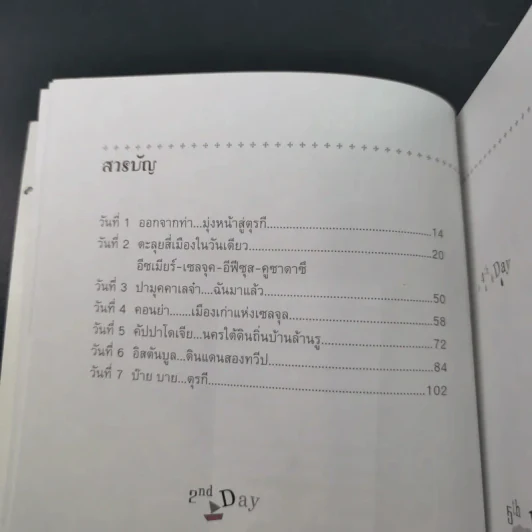 สารบัญ
วันที่ 1 ออกจากท่า...มุ่งหน้าสู่ตุรกี...14
วันที่ 2 ตะลุยสี่เมืองในวันเดียว...20
อีซเมียร์-เซลจุค-อีฟีซุส-คูซาดาซี
วันที่ 3 ปามุคคาเลจ๋า....ฉันมาแล้ว...50
วันที่ 4 คอนย่า.......เมืองเก่าแห่งเซลจุล...58
วันที่ 5 คัปปาโดเจีย...นครใต้ดินถิ่นบ้านล้านรู...72
วันที่ 6 อิสตันบูล...ดินแดนสองทวีป...84
วันที่ 7 บ๊าย บาย...ตุรกี...102
2nd Day
5th